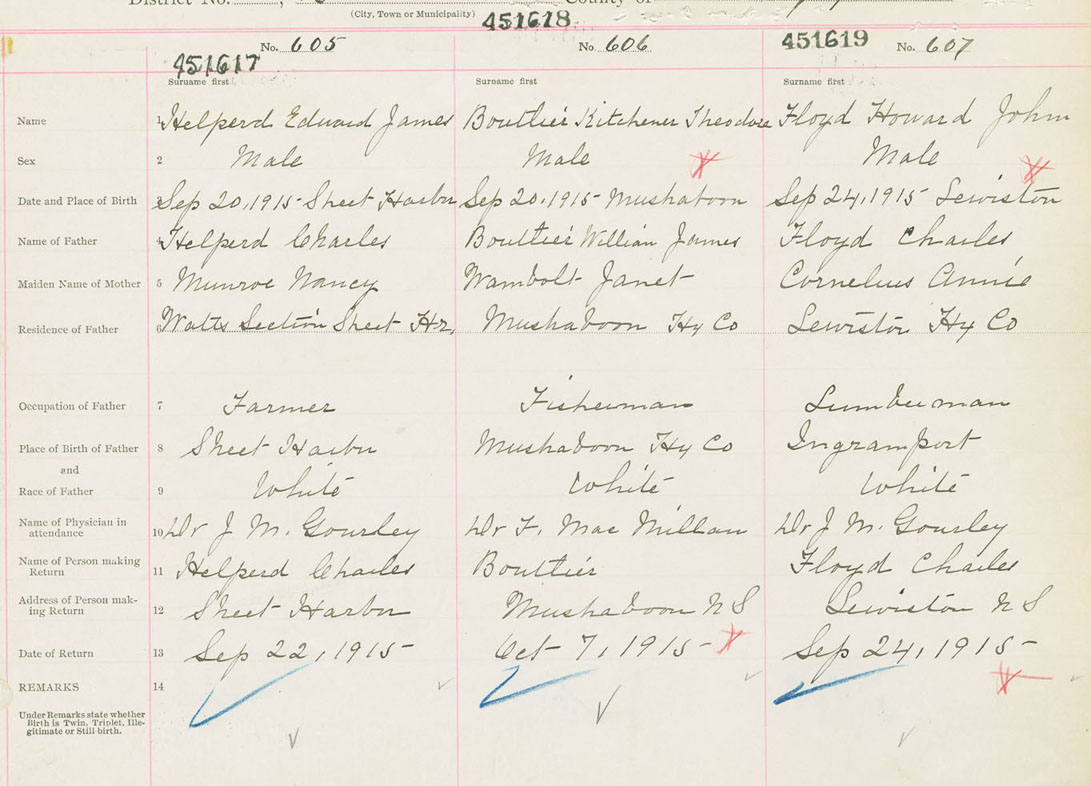 District No. County of
(City, Town or Municipality)
451618
No. 605 No. 606 451619 No. 607
451617
Surname first Surname first Surname first
Name 1 Helperd Edward James Boutlier Kitchener Theodore Floyd Howard John
Sex 2 Male Male Male
Date and Place of Birth 3 Sep 20, 1915 Sheet Harbr Sep 20, 1915 Mushaboon Sep 24, 1915 Lewiston
Name of Father 4 Helperd Charles Bouttier William James Floyd Charles
Maiden Name of Mother 5 Munroe Nancy Wambolt Janet Cornelius Annie
Residence of Father 6 Watts Section Sheet Hr. Mushaboon Hx Co Lewiston Hx Co
Occupation of Father 7 Farmer Fisherman Lumberman
Place of Birth of Father 8 Sheet Harbr Mushaboon Hx Co Ingramport
and
Race of Father 9 White White White
Name of Physician in
attendance 10 Dr J M. Gourley Dr F. Mac Millan Dr J M. Gourley
Name of Person making
Return 11 Helperd Charles Bouttier Floyd Charles
Address of Person mak-
ing Return 12 Sheet Harbr Mushaboon N S Lewiston N S
Date of Return 13 Sep 22, 1915 Oct 7, 1915 Sep 24, 1915
REMARKS 14
Under Remarks state whether
Birth is Twin, Triplet, Ille-
gitimate or Still birth.